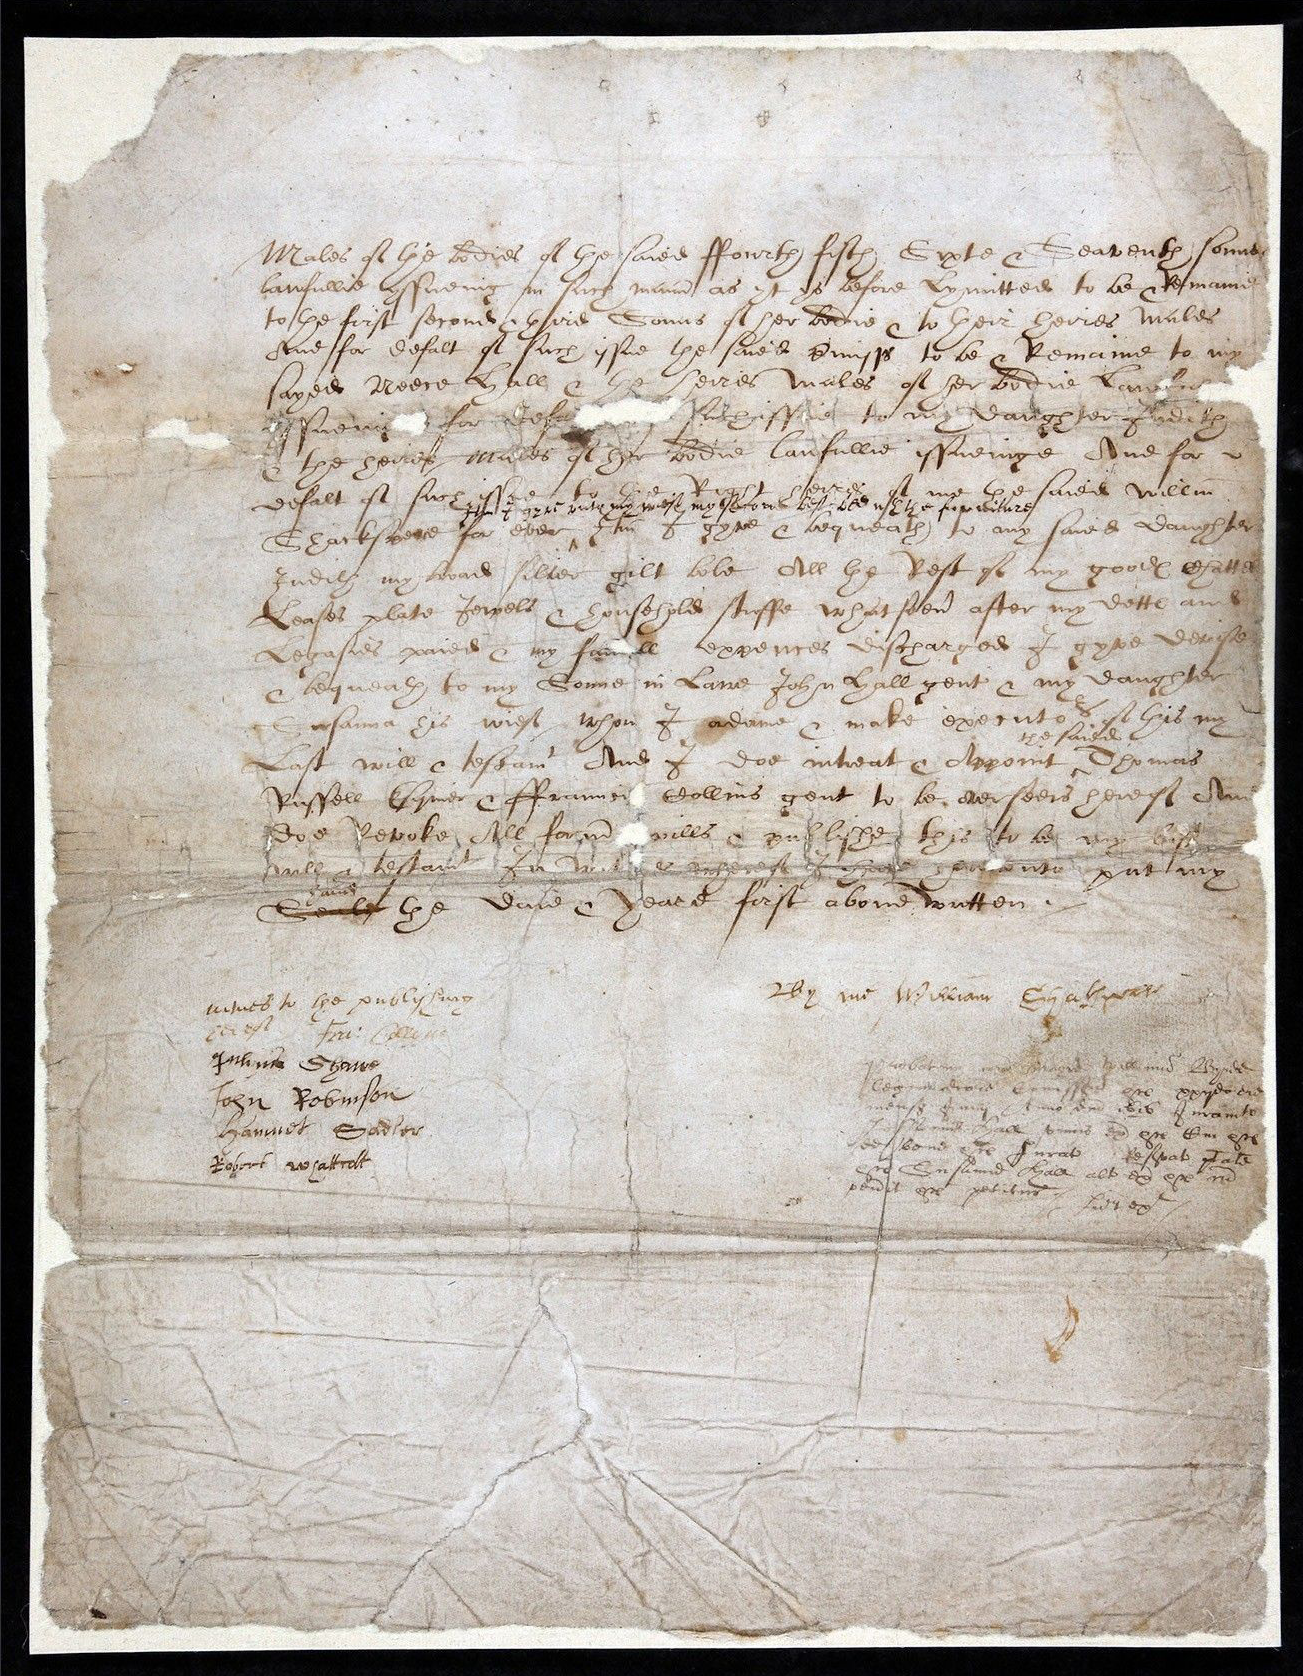 Males of the bodies of the saied ffourth fifth Sixte & Seaventh sonnes
lawfullie yssueing in such mann as yt ys before Lymitted to be & Remaine
to the first second & third Sonns of her bodie & to their heires Males
And for defalt of such issue the saied premiss to be & Remaine to my
sayed Neece Hall & the heires Males of her bodie Lawfully
yssueing for defa such issue to my daughter Judith
& the heires Males of her bodie lawfullie issueinge And for
defalt of such issue to the Right heires of me the saied Willm
Itm I gyve unto my wief my second best bed wth the furniture
Shackspere for ever Itm I gyve & bequeath to my saied daughter
Judith my broad silver gilt bole All the Rest of my goods Chattels
Leases plate Jewels & household stuffe whatsoevr after my detts and
Legasies paied & my funerall expences discharged I gyve devise
& bequeath to my Sonne in Lawe John Hall gent & my daughter
Susanna his wief whom I ordaine & make executors of this my
the saied
Last will & testamt And I doe intreat & Appoint Thomas
Russell Esquier & ffrauncis Collins gent to be overseers hereof And
doe Revoke All formr wills & publishe this to be my last
will & testamt In witnes whereof I have hereunto put my
hand
Seale the daie & yeare first above written
witnes to the publishing By me William Shakspeare
hereof Fra: Collyns
Julius Shawe
John Robinson
Hamnet Sadler
Robert Whattcott